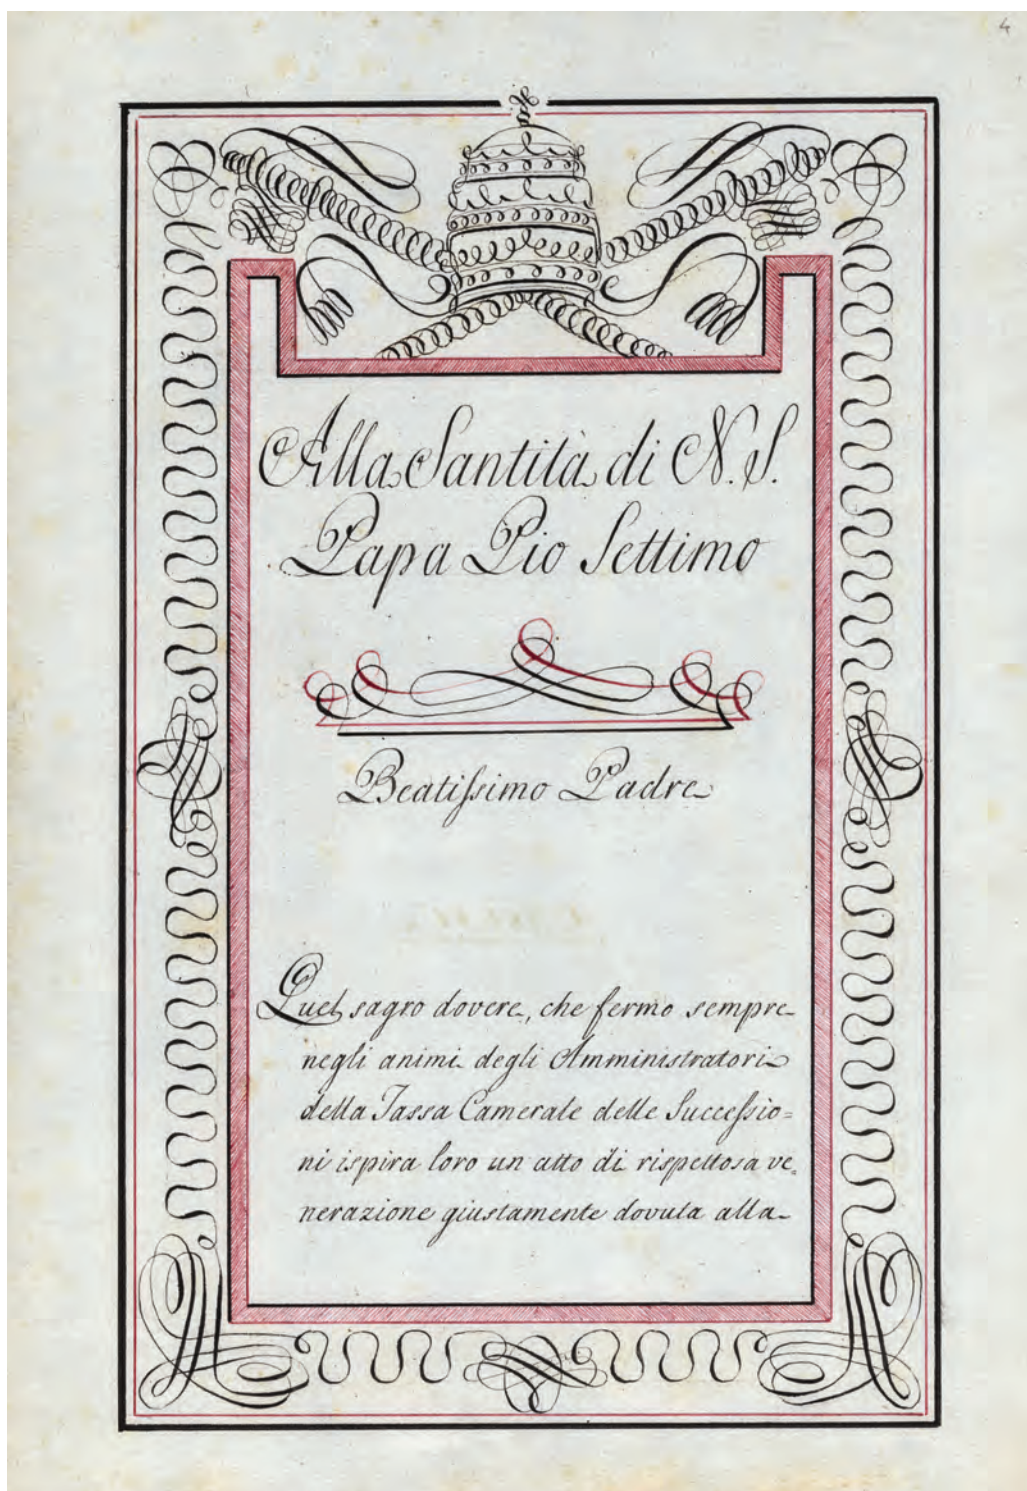 4
Alla Santità di N. S.
Papa Pio Settimo
Beatissimo Padre
Quel sagro dovere, che fermo sempre
negli animi degli Amministratori
della Tassa Camerale delle Successio=
ni ispira loro un atto di rispettosa ve=
nerazione giustamente dovuta alla